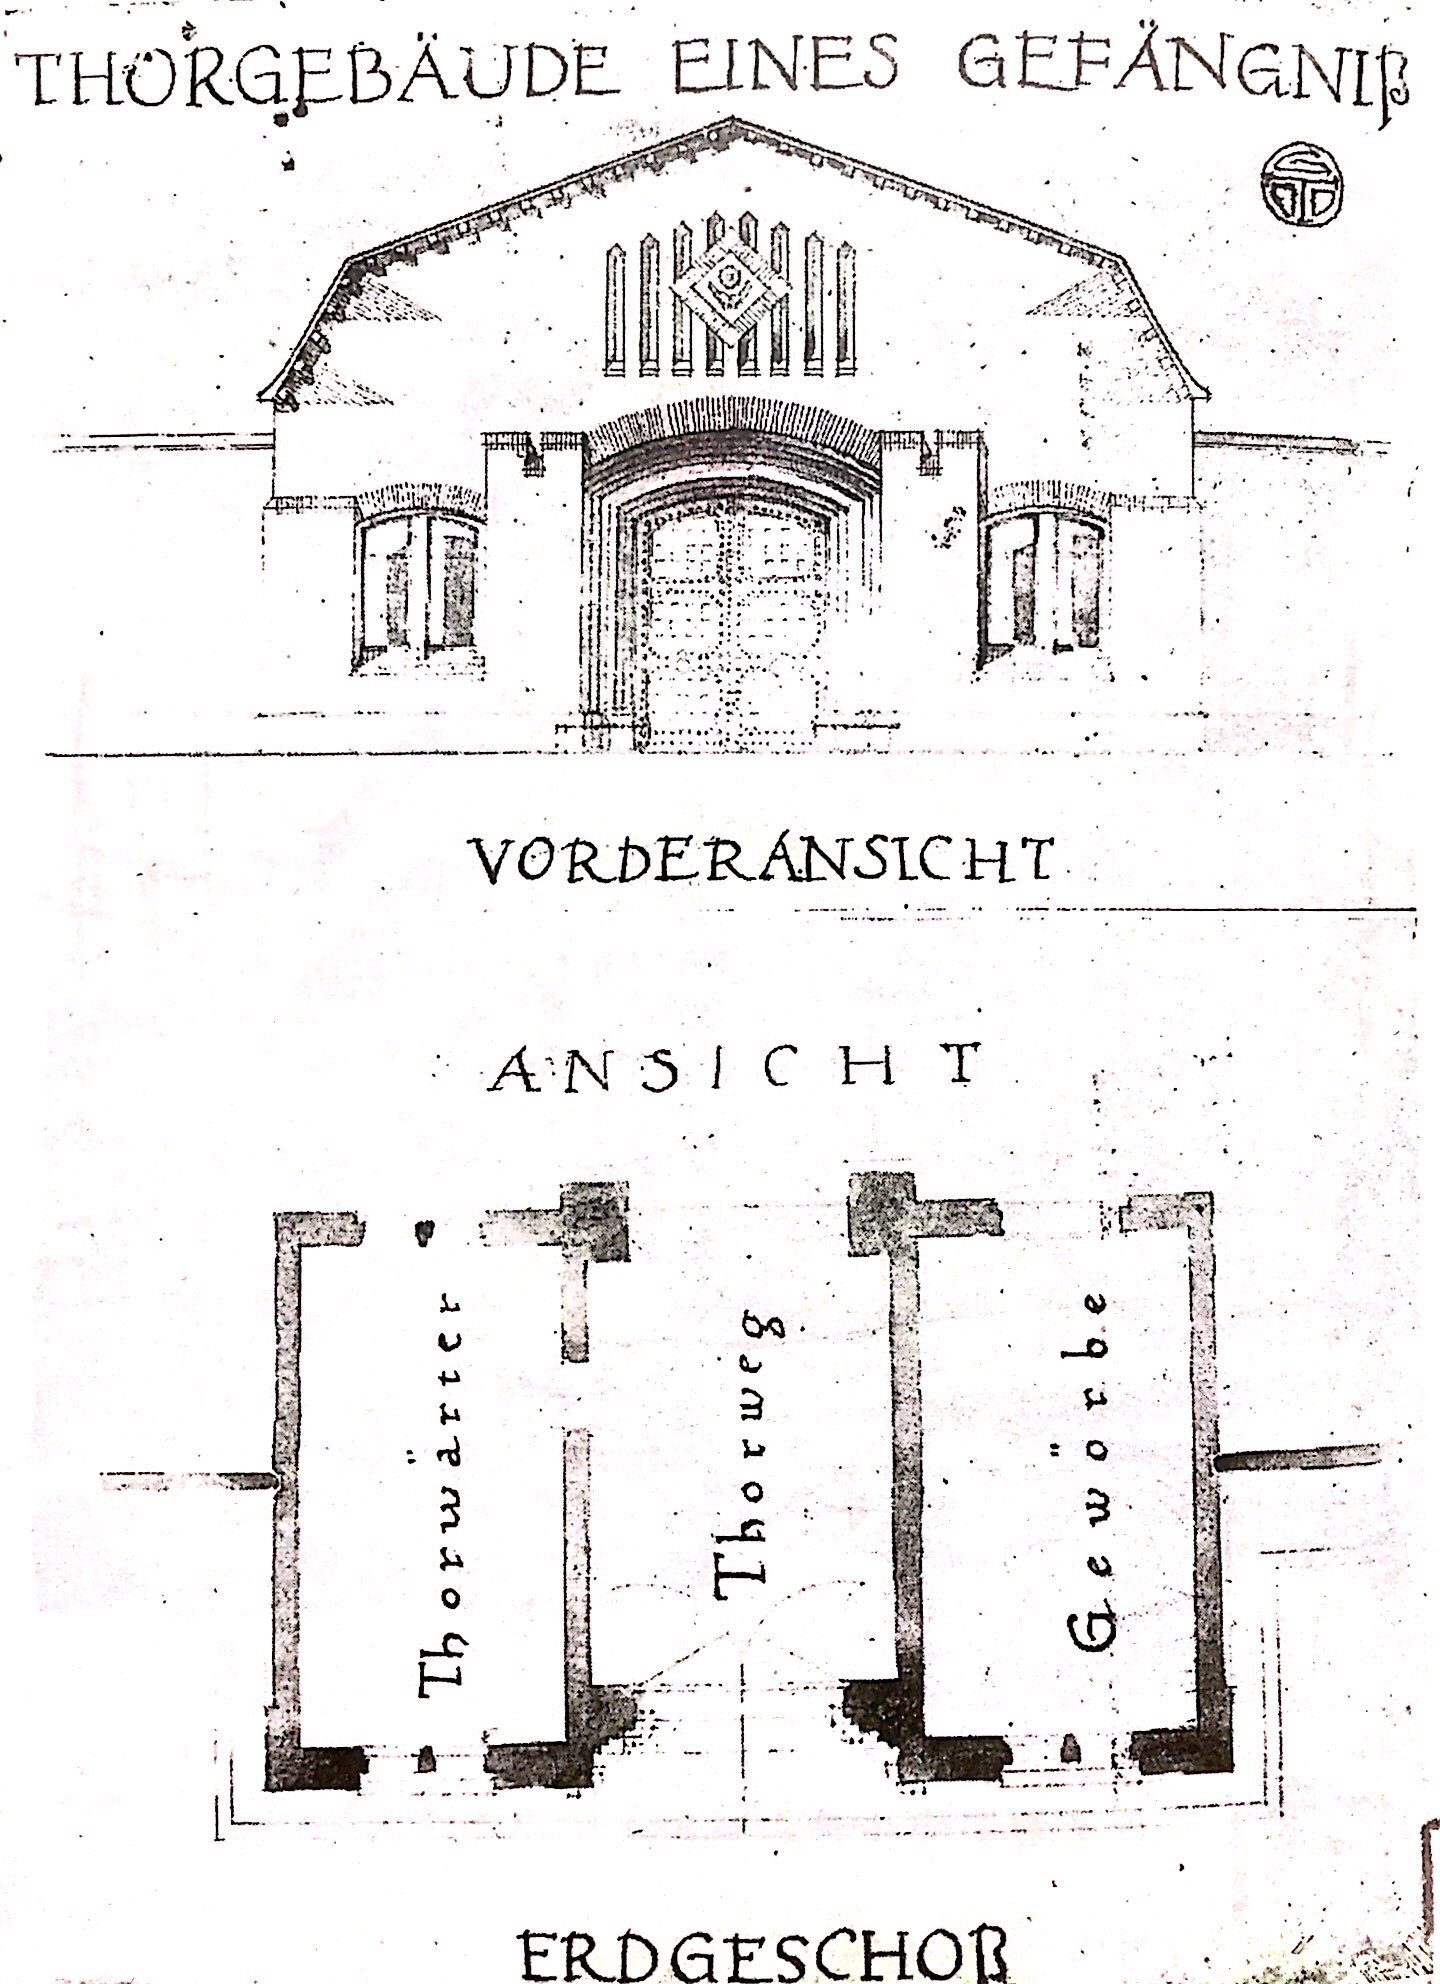 THORGEBÄUDE EINES GEFÄNGNIß
VORDERANSICHT
ANSICHT
Thorwärter
Thorweg
Gewörbe
ERDGESCHOß